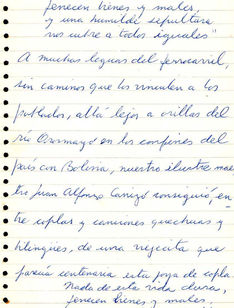 fenecen bienes y males,
y una humilde sepultura
nos cubre a todos iguales"
A muchas leguas del ferrocarril,
sin caminos que los vinculen a los
poblados, allá lejos a orillas del
río Orosmayo en los confines del
país con Bolivia, nuestro ilustre maes
tro Juan Alfonso Carrizo consiguió en
tre coplas y canciones quechuas y
bilingües, de una viejcita que
parecía centenaria esta joya de copla.
Nada de esta vida dura,
fenecen bienes y males